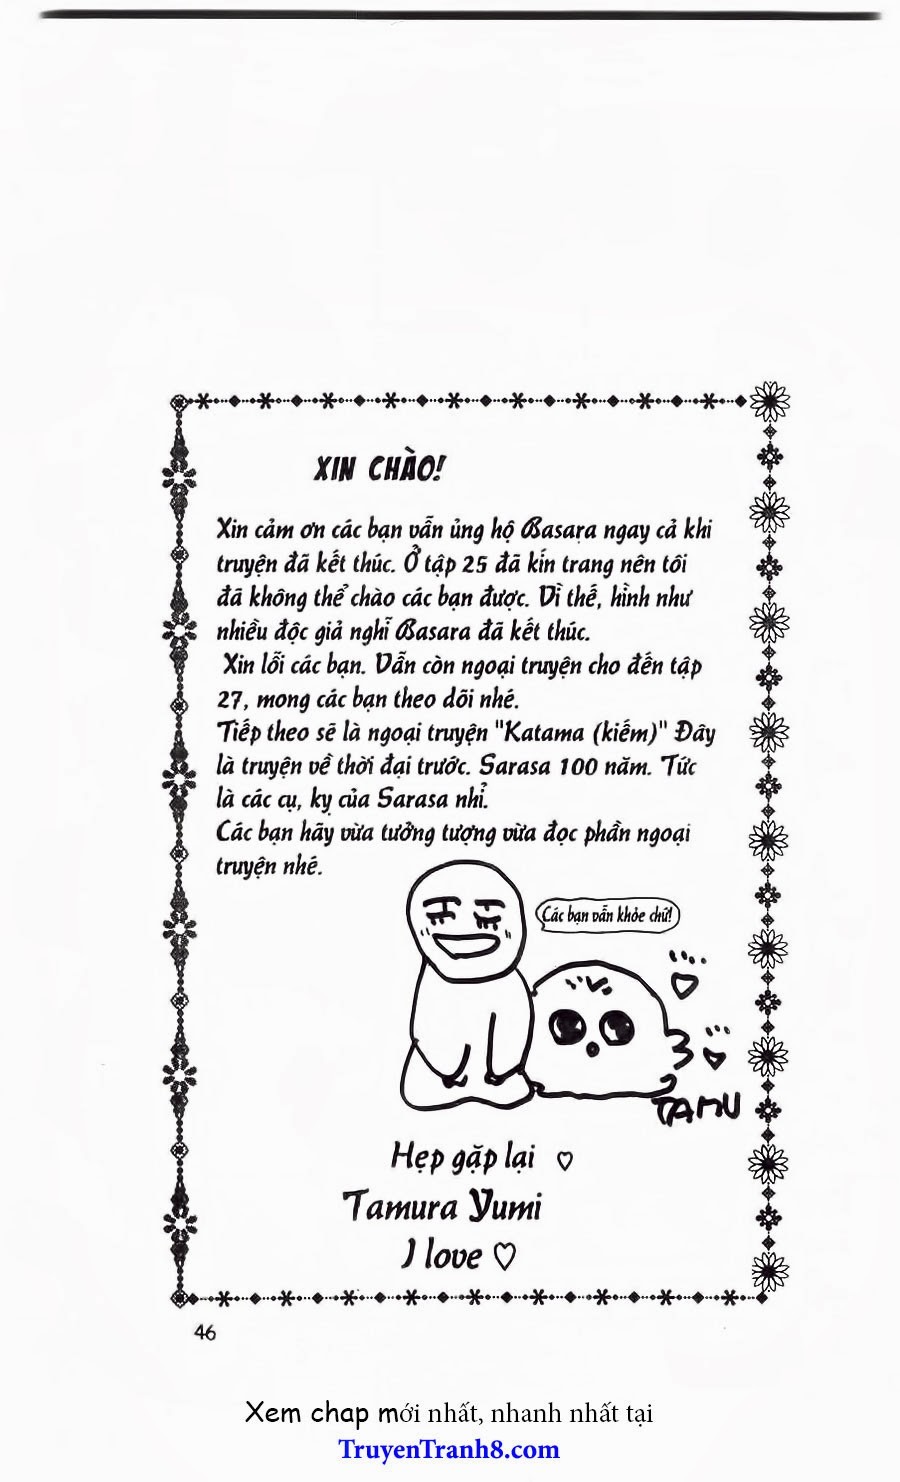 XIN CHÀO!
Xin cảm ơn các bạn vẫn ủng hộ Basara ngay cả khi
truyện đã kết thúc. Ở tập 25 đã kín trang nên tôi
đã không thể chào các bạn được. Vì thế, hình như
nhiều độc giả nghĩ Basara đã kết thúc.
Xin lỗi các bạn. Vẫn còn ngoại truyện cho đến tập
27, mong các bạn theo dõi nhé.
Tiếp theo sẽ là ngoại truyện "Katama (kiếm)" Đây
là truyện về thời đại trước. Sarasa 100 năm. Tức
là các cụ, kỵ của Sarasa nhỉ.
Các bạn hãy vừa tưởng tượng vừa đọc phần ngoại
truyện nhé.
Các bạn vẫn khỏe chứ!
TAMU
Hẹp gặp lại ♡
Tamura Yumi
I love ♡
46
Xem chap mới nhất, nhanh nhất tại
TruyenTranh8.com